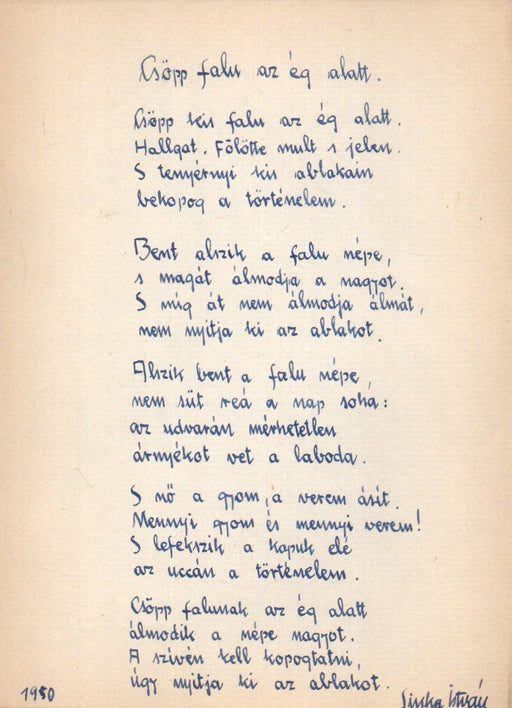 Csöpp falu az ég alatt.
Csöpp kis falu az ég alatt.
Hallgat. Fölötte mult s jelen.
S tenyérnyi kis ablakain
bekopog a történelem.
Bent alszik a falu népe,
s magát álmodja a nagyot.
S míg át nem álmodja álmát,
nem nyitja ki az ablakot.
Alszik bent a falu népe,
nem süt reá a nap soha:
az udvarán mérhetetlen
árnyékot vet a laboda.
S nő a gyom, a verem ásít.
Mennyi gyom és mennyi verem!
S lefekszik a kapuk elé
az uccán a történelem.
Csöpp falunak az ég alatt
álmodik a népe nagyot.
A szívén kell kopogtatni,
úgy nyitja ki az ablakot.
1950
Sinka István